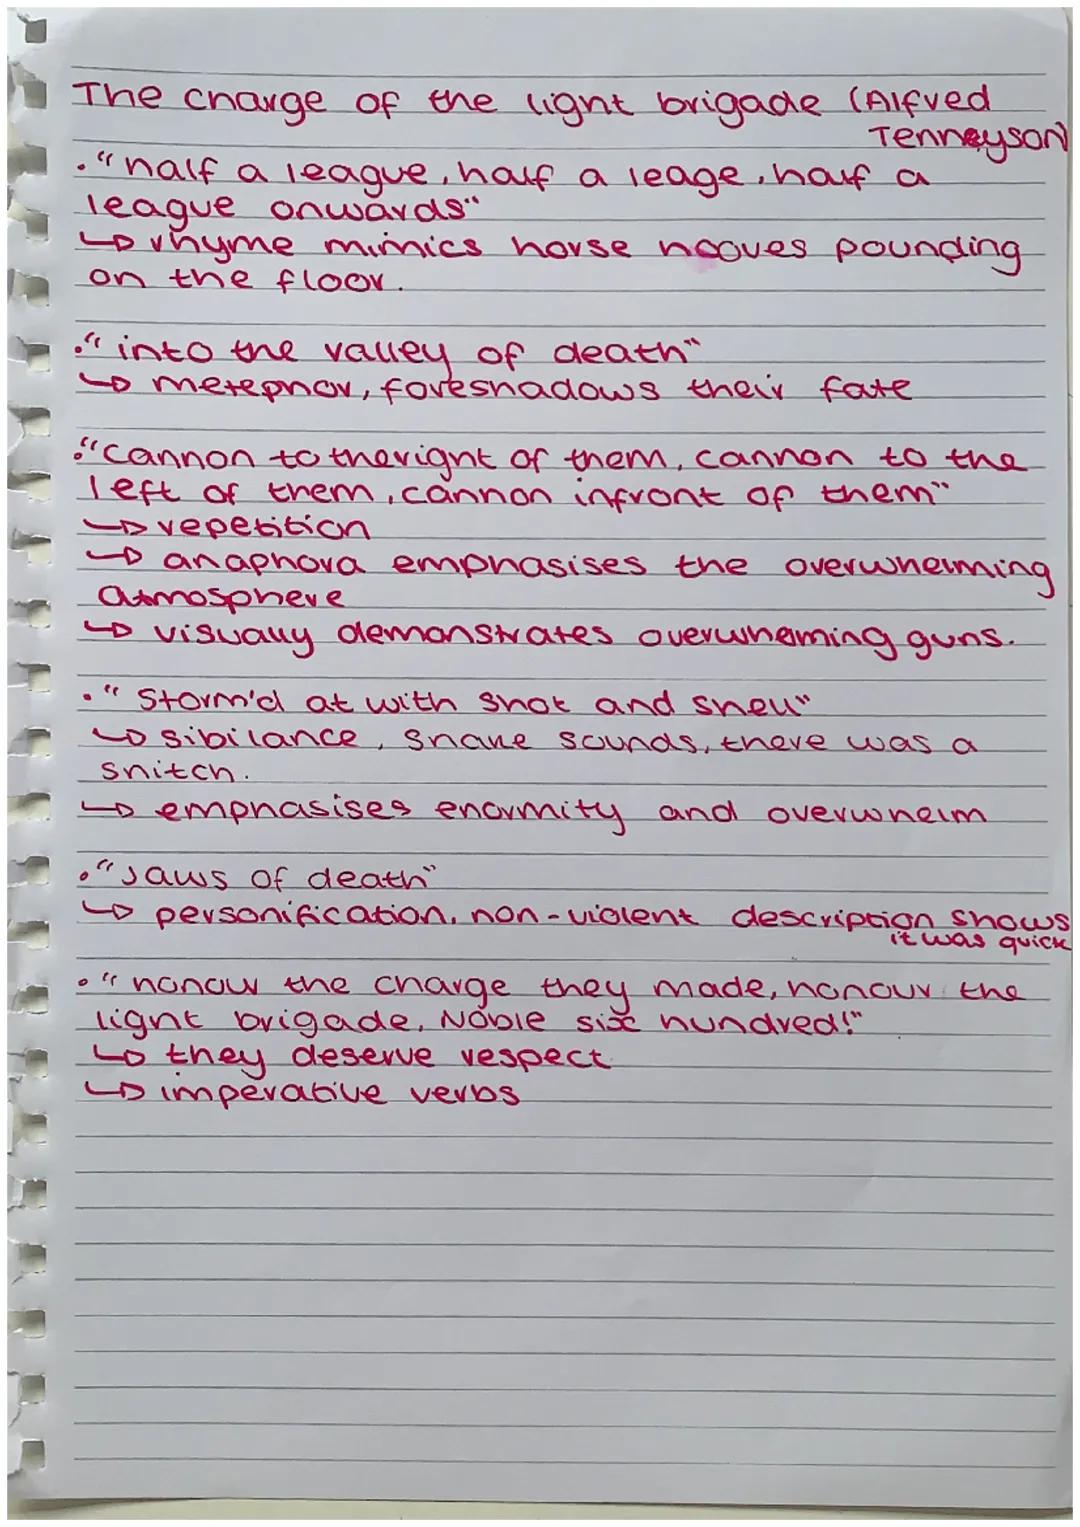 The charge of the light brigade (Alfred
Tenneyson)
• "half a league, half a leage, half a
league onwards"
↳ rhyme mimics horse hooves pounding
on the floor.
• "into the valley of death"
↳ metephor, foreshadows their fate
• "Cannon to the right of them, cannon to the
left of them, cannon infront of them"
↳ repetition
↳ anaphora emphasises the overwhelming
atmosphere
↳ visually demonstrates overwheming guns.
• "Storm'd at with shot and shell"
↳ sibilance, snake sounds, there was a
snitch.
↳ emphasises enormity and overwhelm
• "Jaws of death"
↳ personification, non-violent description shows
it was quick
• "honour the charge they made, honour the
light brigade, Noble six hundred!"
↳ they deserve respect
↳ imperative verbs